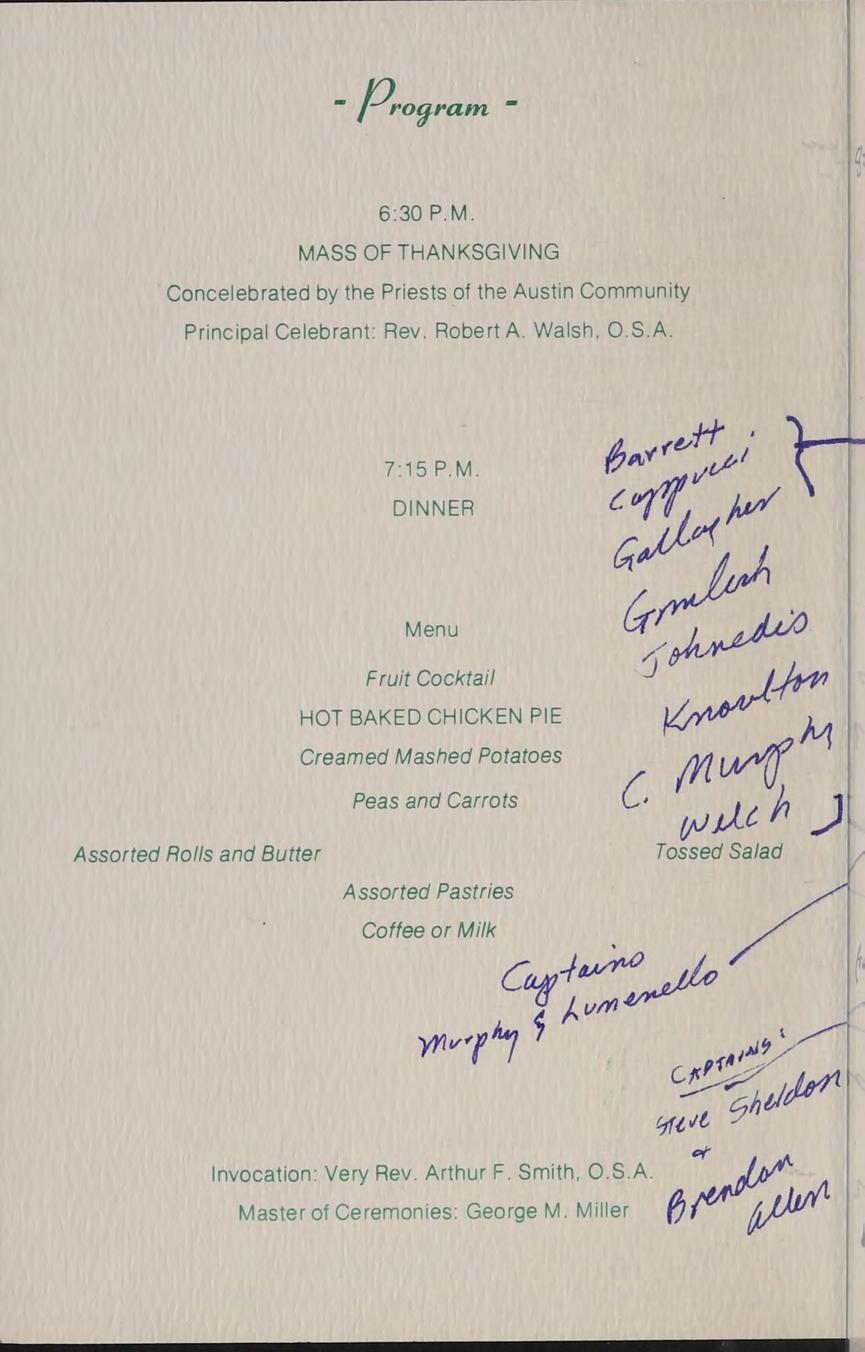 - Program -
6:30 P.M.
MASS OF THANKSGIVING
Concelebrated by the Priests of the Austin Community
Principal Celebrant: Rev. Robert A. Walsh, O.S.A.
Barrett
Cappucci
Gallagher
7:15 P.M.
DINNER
Johnedis
Knowlton
C. Murphy
Welch
Menu
Fruit Cocktail
HOT BAKED CHICKEN PIE
Creamed Mashed Potatoes
Peas and Carrots
Assorted Rolls and Butter
Tossed Salad
Assorted Pastries
Coffee or Milk
Captains
Murphy & Lumenello
CAPTAINS:
Steve Sheldon
+
Brendan
Allen
Invocation: Very Rev. Arthur F. Smith, O.S.A.
Master of Ceremonies: George M. Miller